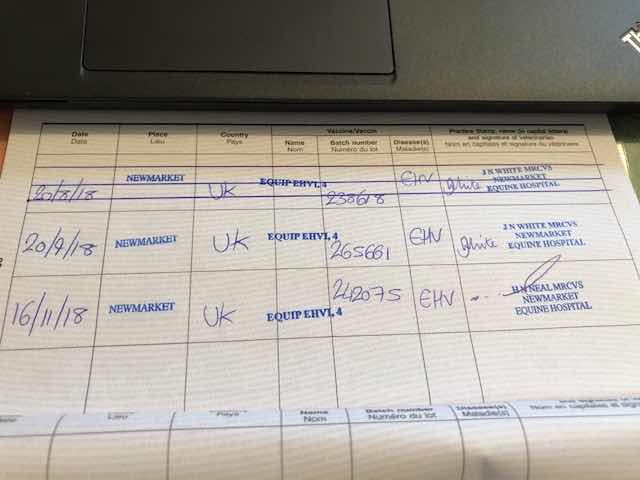 Date Place Country Vaccine/Vaccin Practice Stamp, name (in capital letters)
and signature of veterinarian
Date Lieu Pays Name Batch number Disease(s) Nom en capitales et signature du vétérinaire
Nom Numéro du lot Maladie(s)
20/8/18 NEWMARKET UK EQUIP EHV1,4 238618 EHV White J N WHITE MRCVS
NEWMARKET
EQUINE HOSPITAL
20/9/18 NEWMARKET UK EQUIP EHV1,4 265661 EHV White J N WHITE MRCVS
NEWMARKET
EQUINE HOSPITAL
16/11/18 NEWMARKET UK EQUIP EHV1,4 242075 EHV H N NEAL MRCVS
NEWMARKET
EQUINE HOSPITAL
Lieu Pays Name Batch number Disease(s)
Nom Numéro du lot Maladie(s) Nom en capitales et